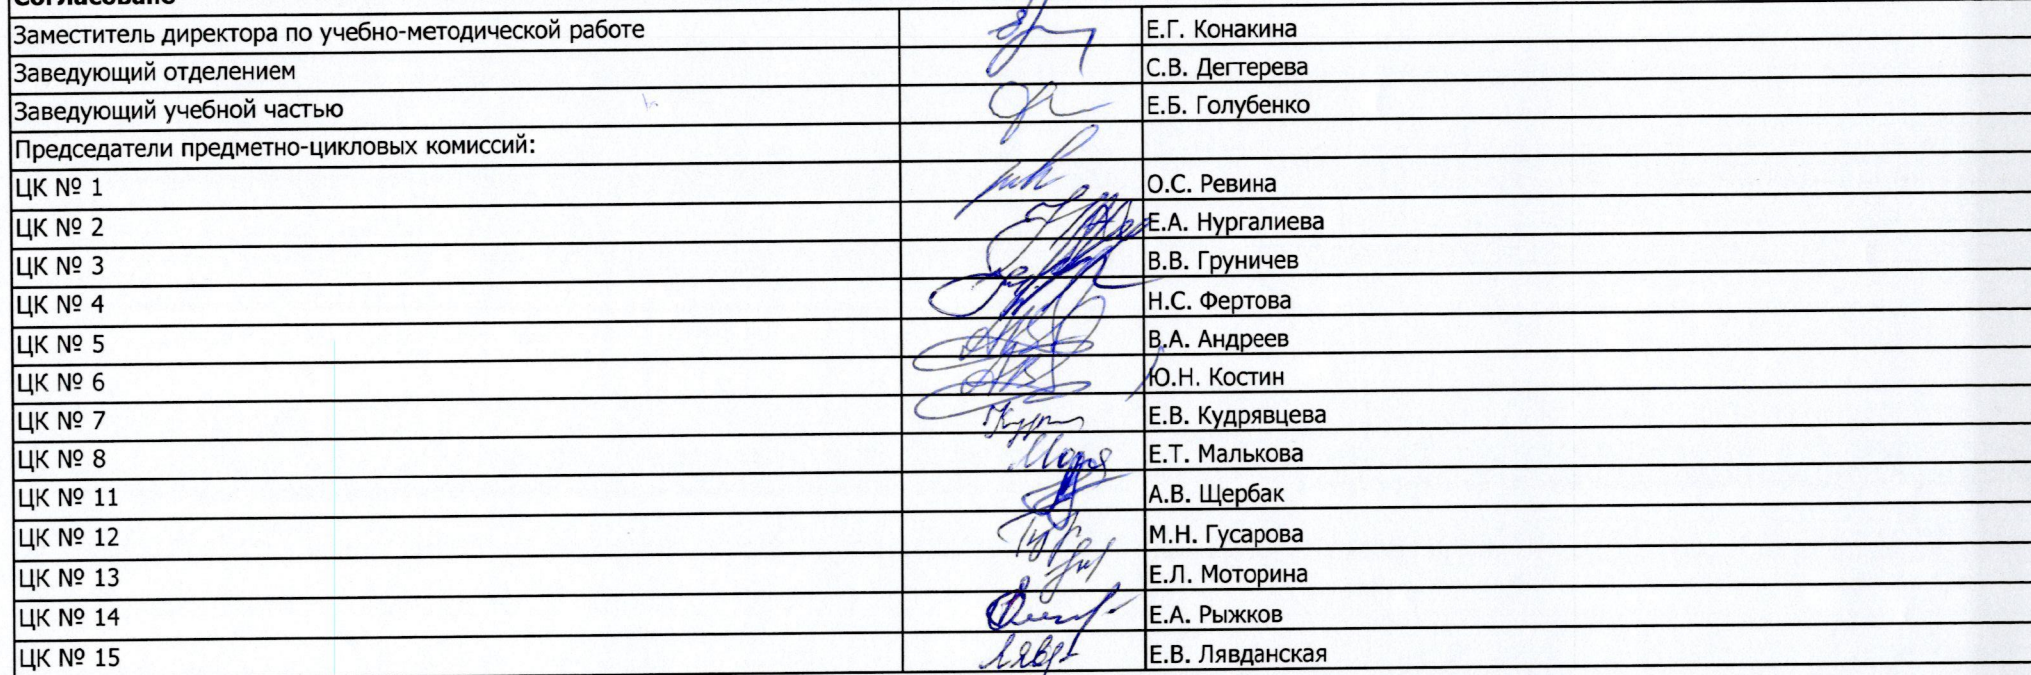 Согласовано
Заместитель директора по учебно-методической работе Е.Г. Конакина
Заведующий отделением С.В. Дегтерева
Заведующий учебной частью Е.Б. Голубенко
Председатели предметно-цикловых комиссий:
ЦК № 1 О.С. Ревина
ЦК № 2 Е.А. Нургалиева
ЦК № 3 В.В. Груничев
ЦК № 4 Н.С. Фертова
ЦК № 5 В.А. Андреев
ЦК № 6 Ю.Н. Костин
ЦК № 7 Е.В. Кудрявцева
ЦК № 8 Е.Т. Малькова
ЦК № 11 А.В. Щербак
ЦК № 12 М.Н. Гусарова
ЦК № 13 Е.Л. Моторина
ЦК № 14 Е.А. Рыжков
ЦК № 15 Е.В. Лявданская